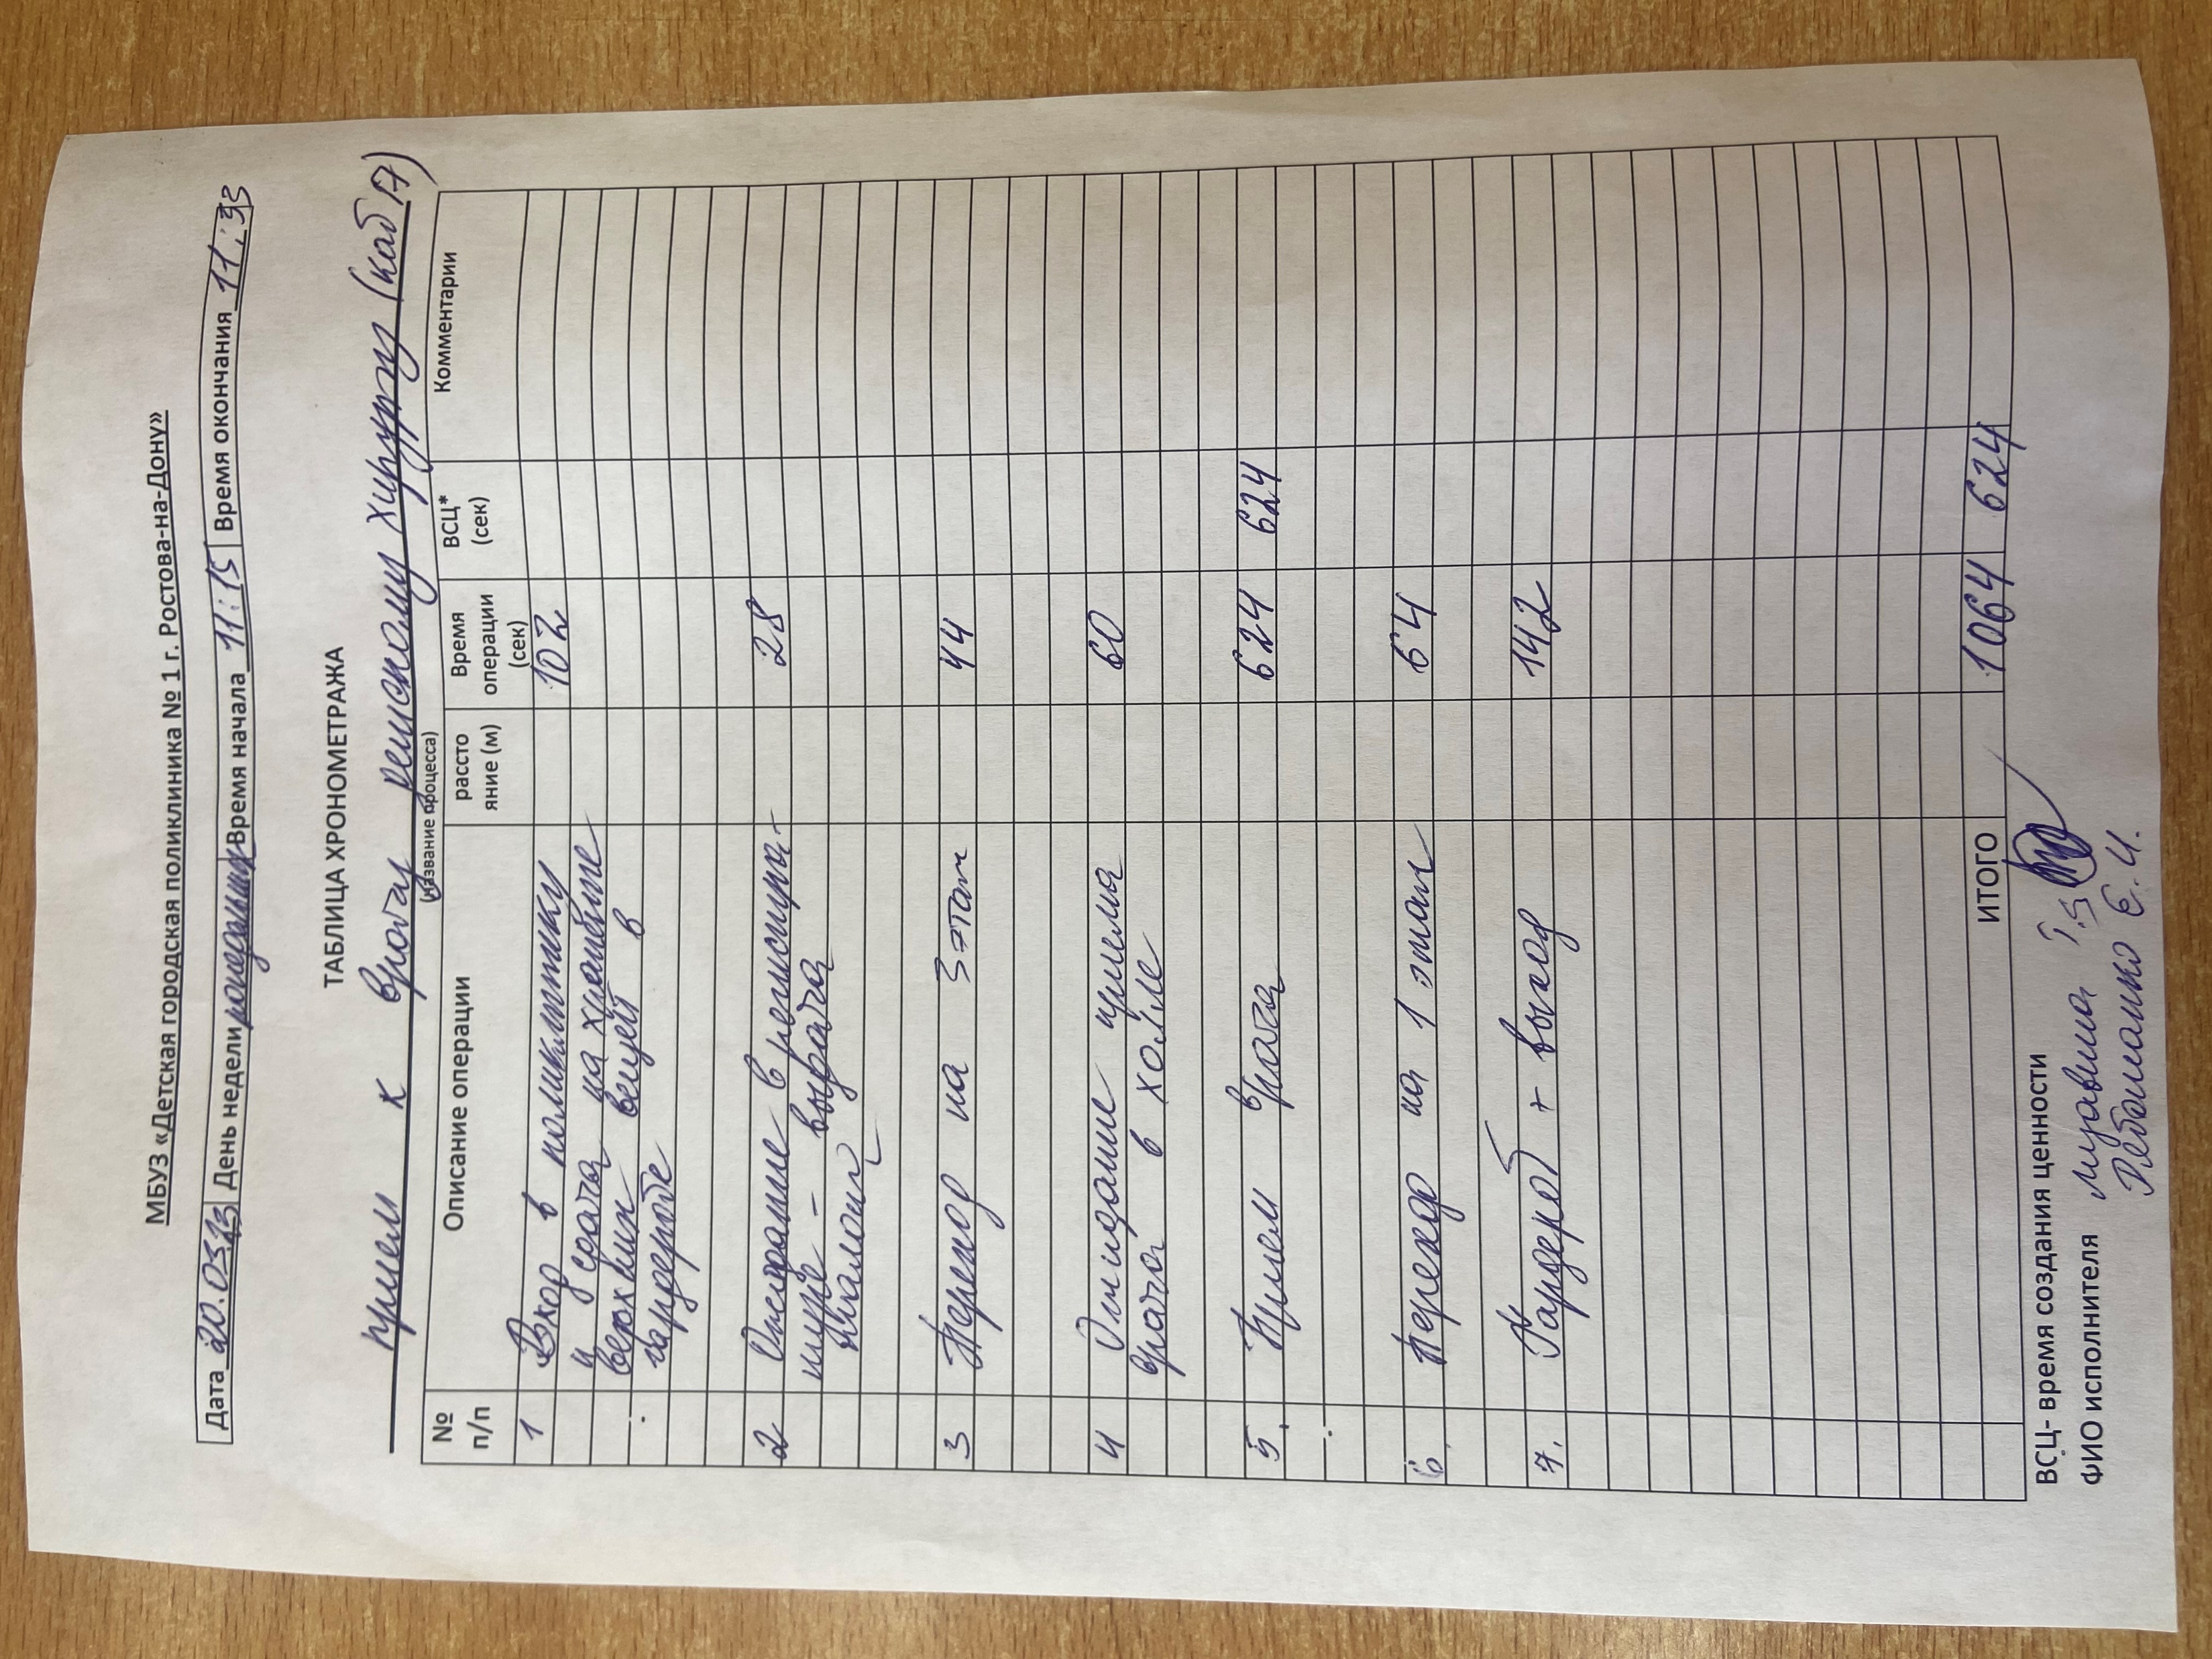 МБУЗ «Детская городская поликлиника № 1 г. Ростова-на-Дону»
Дата 20.03.23 День недели понедельник Время начала 11:15 Время окончания 11:33
ТАБЛИЦА ХРОНОМЕТРАЖА
прием к врачу детскому хирургу (каб 17)
(название процесса)
№ п/п Описание операции рассто яние (м) Время операции (сек) ВСЦ* (сек) Комментарии
1 Вход в поликлинику 102
и сдача на хранение
верхних вещей в
гардеробе
2 Ожидание в регистра- 28
туре - выдача
талона
3 Переход на 3 этаж 44
4 Ожидание приема 60
врача в холле
5. Прием врача 624 624
6. Переход на 1 этаж 64
7. Гардероб + выход 142
ИТОГО 1064 624
ВСЦ- время создания ценности
ФИО исполнителя
Е.И.